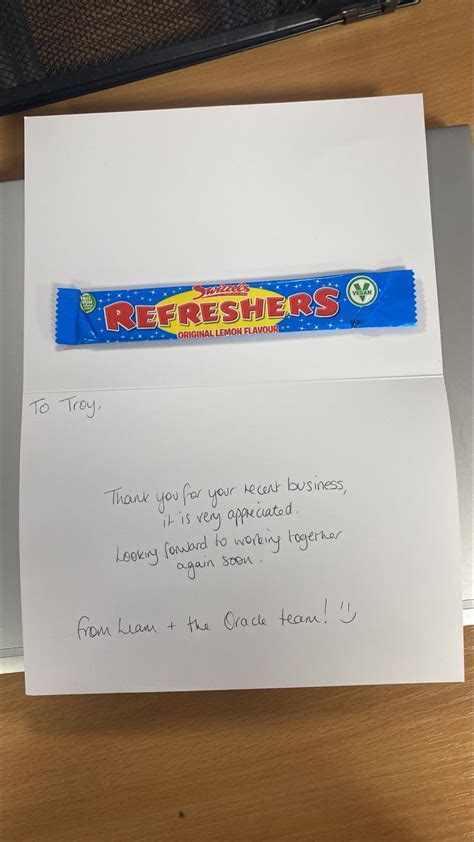 Swizzels
REFRESHERS
ORIGINAL LEMON FLAVOUR
VEGAN
To Troy,
Thank you for your recent business,
it is very appreciated.
Looking forward to working together
again soon.
from Liam + the Oracle team! :)